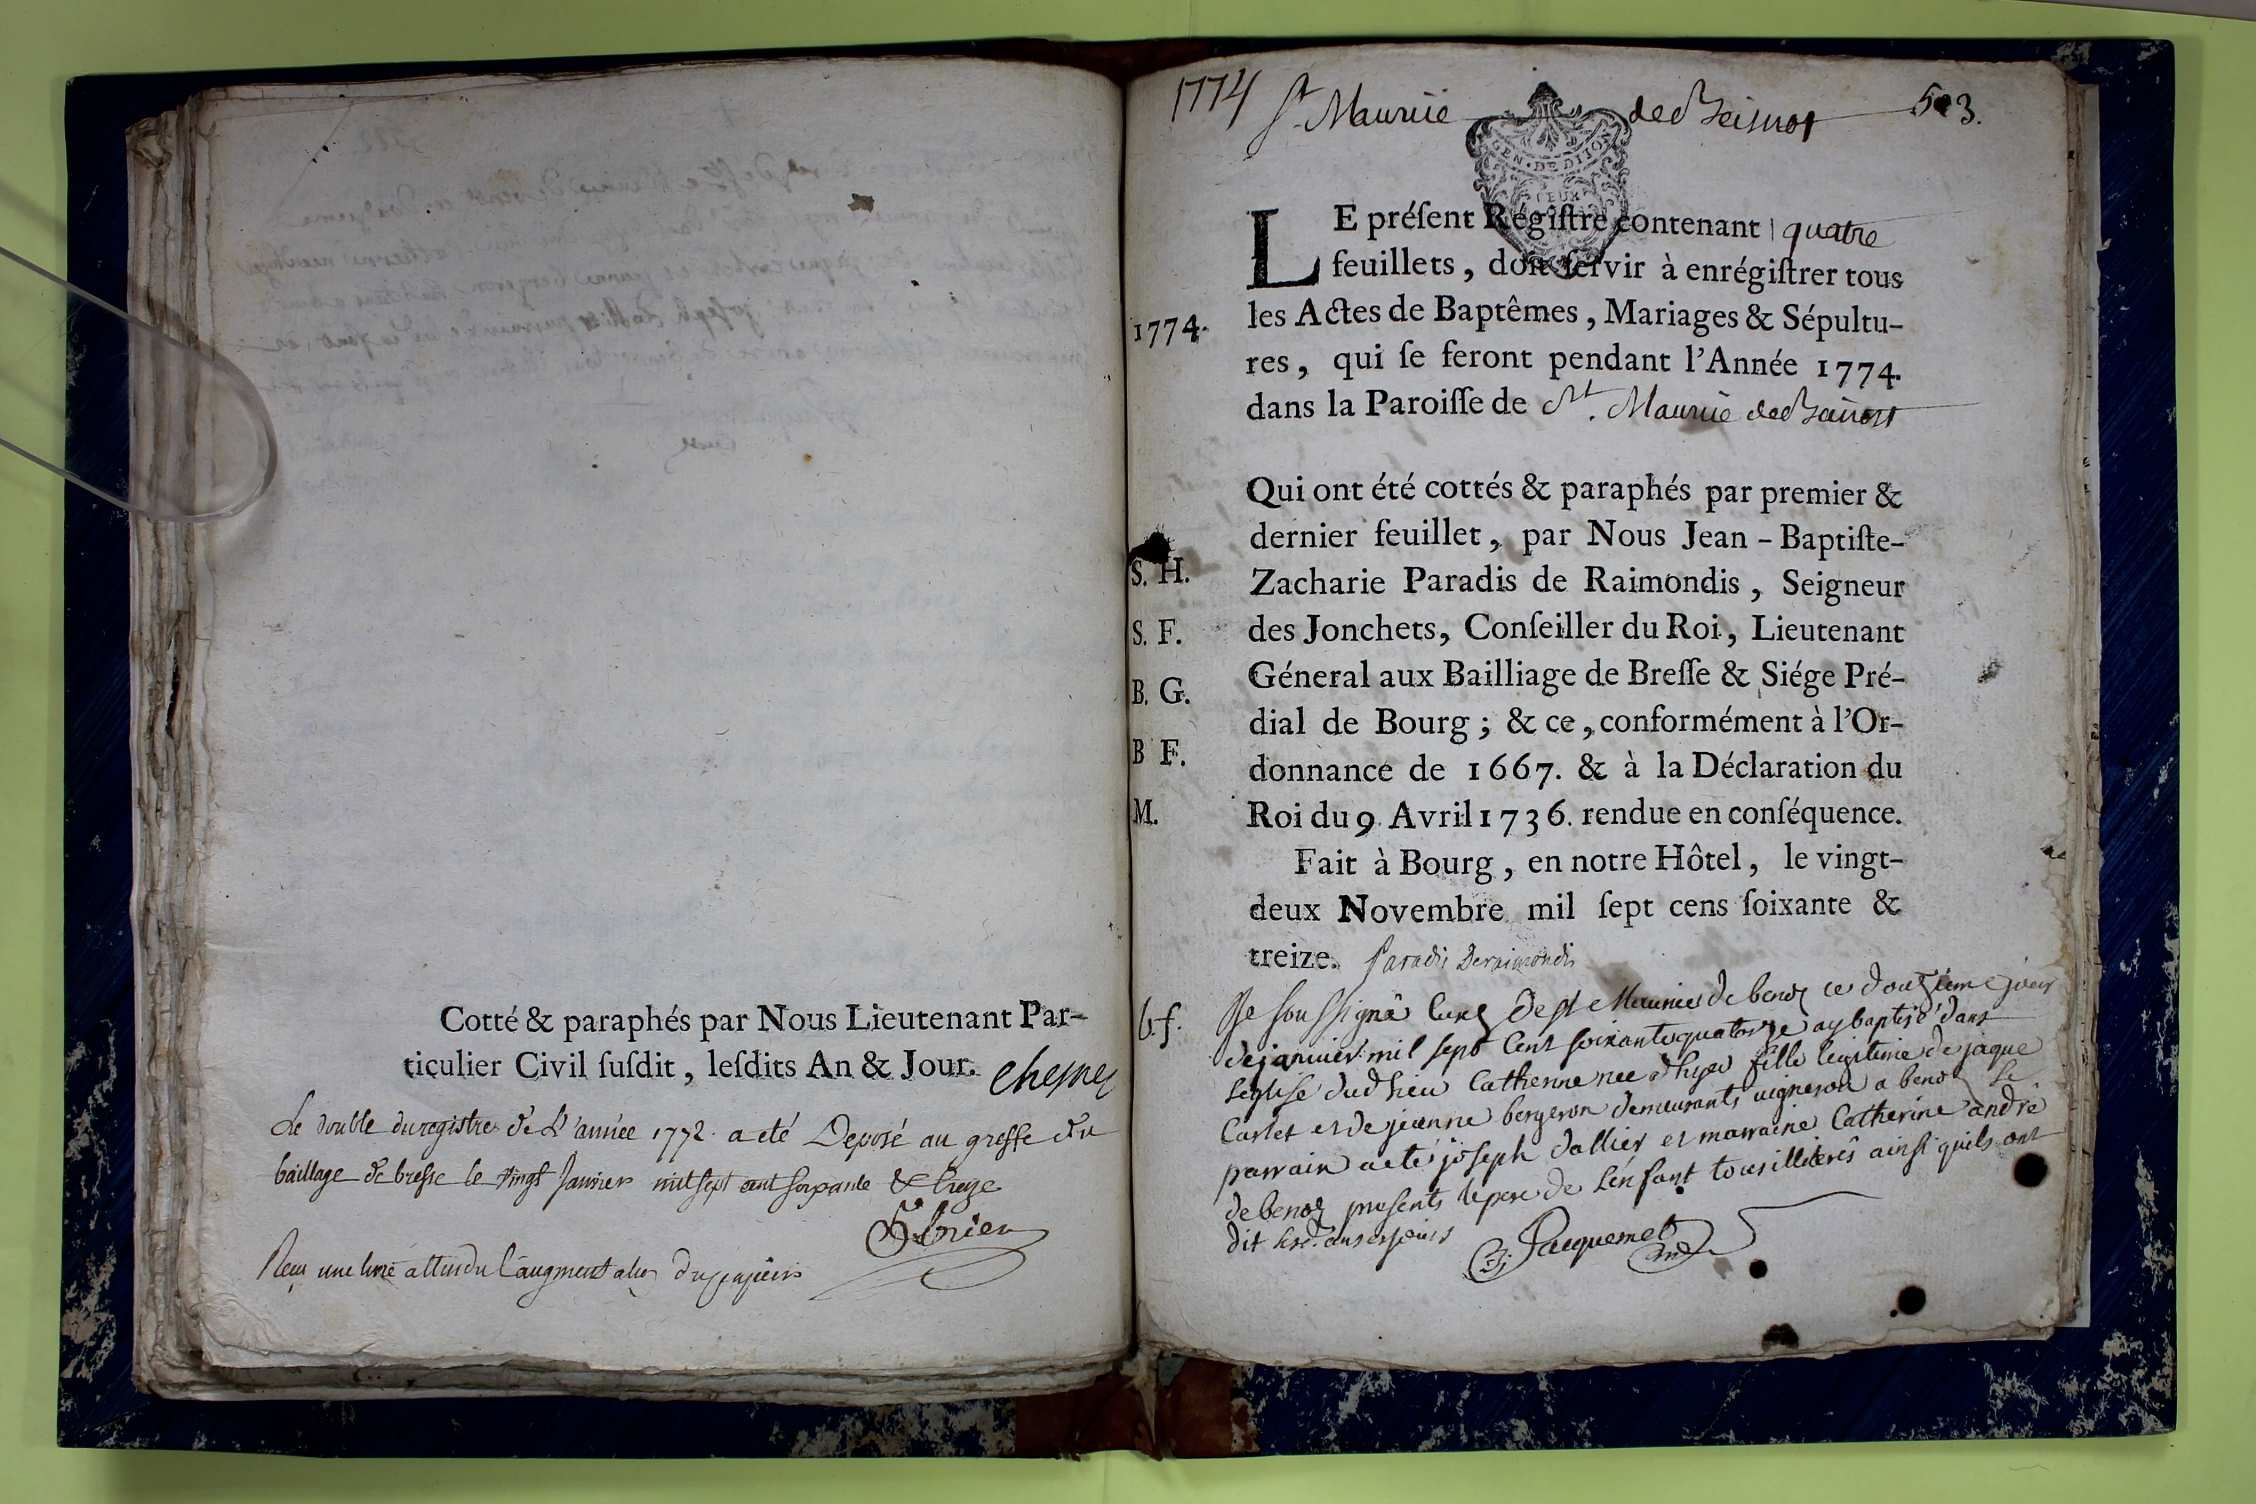 Cotté & paraphés par Nous Lieutenant Par-
ticulier Civil ſuſdit, leſdits An & Jour.
Le double du registre de L'année 1772. a eté Deposé au greffe du
baillage de bresse le vingt Janvier mil sept cent soixante & treize
Reçu une livre attendu l'augmentation du papier
1774 St Maurice de Beisnost 503.
GEN · DE DIJON
DEUX
LE préſent Régiſtre contenant quatre
feuillets, doit ſervir à enrégiſtrer tous
1774.
les Actes de Baptêmes, Mariages & Sépultu-
res, qui ſe feront pendant l'Année 1774.
dans la Paroiſſe de St. Maurice de Beinost
Qui ont été cottés & paraphés par premier &
dernier feuillet, par Nous Jean-Baptiſte-
S. H.
Zacharie Paradis de Raimondis, Seigneur
S. F.
des Jonchets, Conſeiller du Roi, Lieutenant
B. G.
Géneral aux Bailliage de Breſſe & Siége Pré-
dial de Bourg; & ce, conformément à l'Or-
B F.
donnance de 1667. & à la Déclaration du
M.
Roi du 9 Avril 1736. rendue en conſéquence.
Fait à Bourg, en notre Hôtel, le vingt-
deux Novembre mil ſept cens ſoixante &
treize. Paradis Deraimondis
b. f.
Je soussigné curé de st Maurice de benoz ce douzieme jour
de janvier mil sept cent soixante quatorze ay baptisé dans
leglise dud lieu Catherine nee d'hyer fille legitime de jaque
Carlet et de jeanne bergeron demeurants vigneron a benoz le
parrain a eté joseph dallier et marraine Catherine andré
de benoz presents le pere de l'enfant tous illiterés ainsi quils ont
dit
Jacquemet